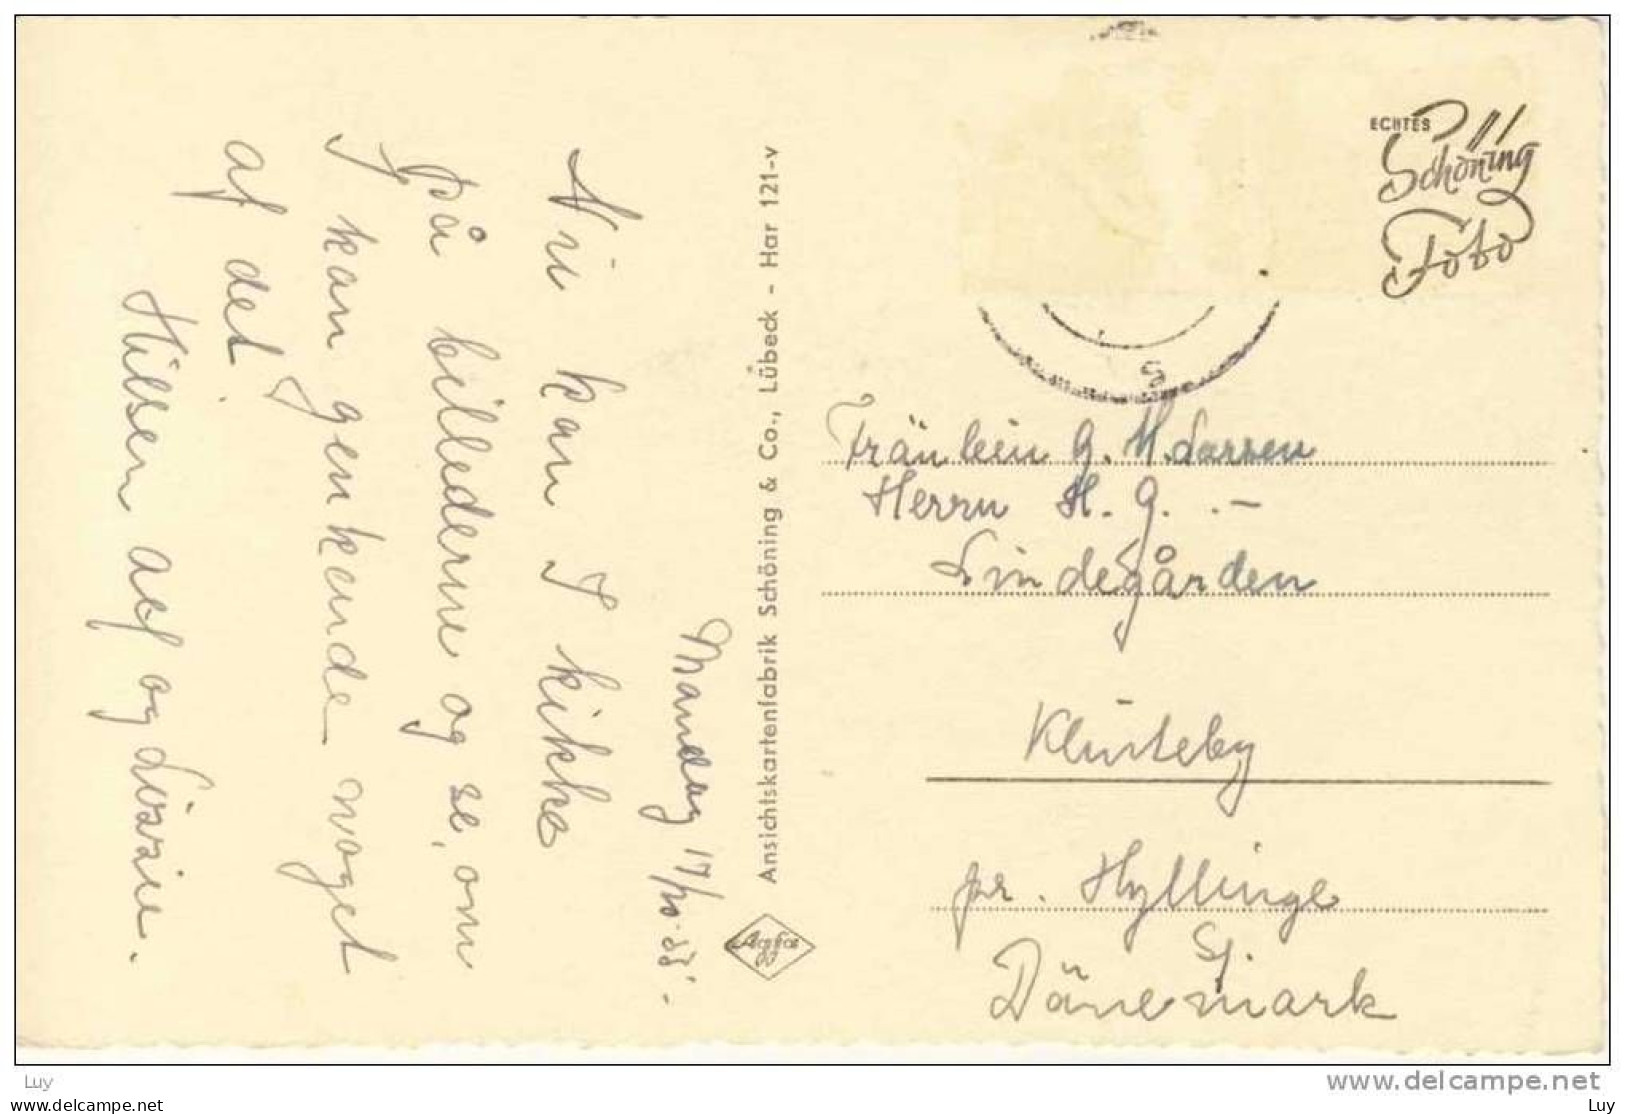 Mandag 17/10-55.
Nu kan I kikke
på billederne og se, om
I kan genkende noget
af det.
Hilsen Alf og Lissie.
Ansichtskartenfabrik Schöning & Co., Lübeck - Har 121-v
Agfa
ECHTES
Schöning
Foto
Fräulein G. M. Larsen
Herrn H. G. . -
Lindegården
Klinteby
pr. Hyllinge
Sj.
Dänemark
Luy
www.delcampe.net
Luy
www.delcampe.net
Luy